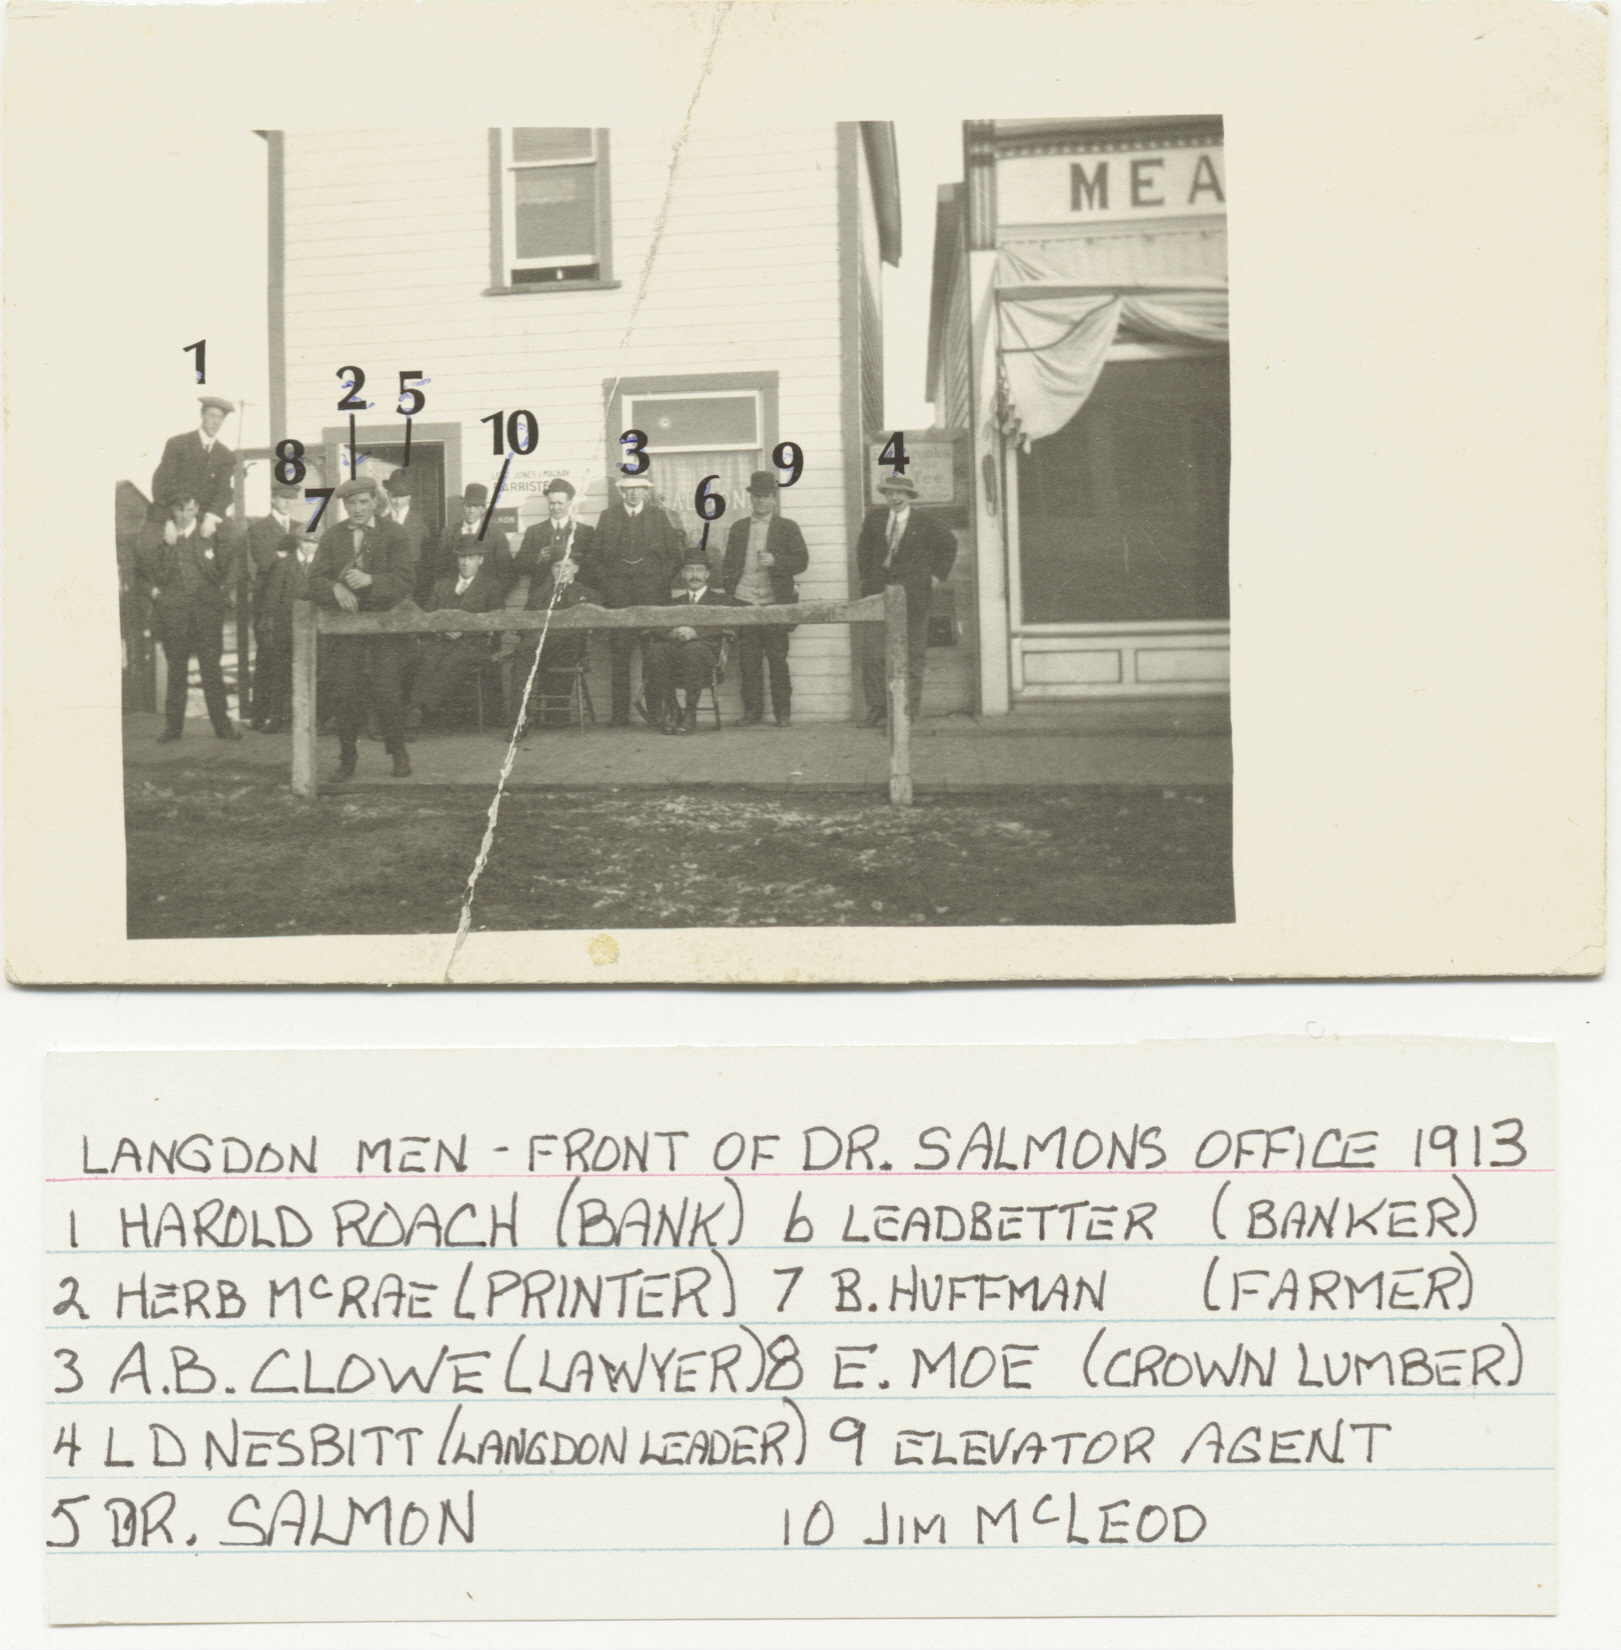 MEA
1
2
5
10
8
3
9
4
7
6
JONES & MACKAY
BARRISTE
SALMON
LANGDON MEN - FRONT OF DR. SALMONS OFFICE 1913
1 HAROLD ROACH (BANK) 6 LEADBETTER (BANKER)
2 HERB McRAE (PRINTER) 7 B. HUFFMAN (FARMER)
3 A.B. CLOWE (LAWYER) 8 E. MOE (CROWN LUMBER)
4 L D NESBITT (LANGDON LEADER) 9 ELEVATOR AGENT
5 DR. SALMON 10 JIM McLEOD